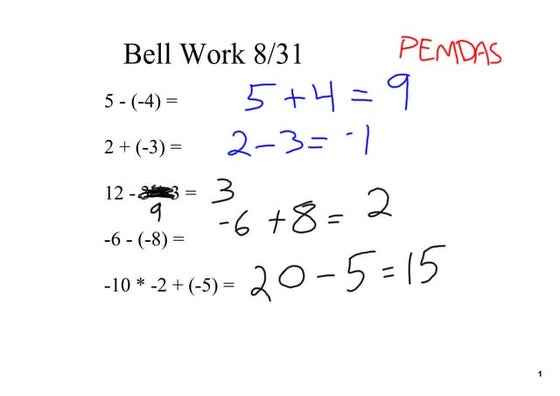 Bell Work 8/31
PEMDAS
5 - (-4) = 5 + 4 = 9
2 + (-3) = 2 - 3 = -1
12 - 3 = 3
9
-6 - (-8) = -6 + 8 = 2
-10 * -2 + (-5) = 20 - 5 = 15
1